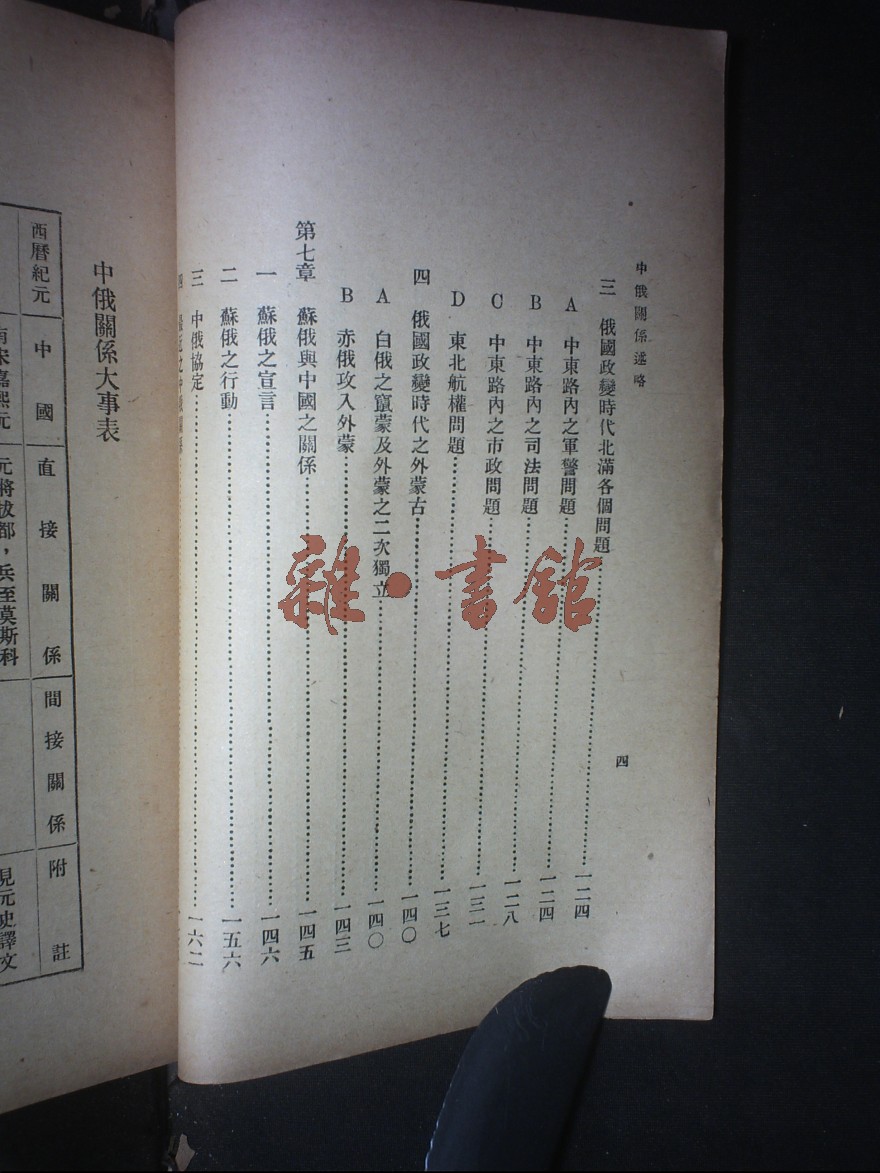 中俄關係述略
四
三 俄國政變時代北滿各個問題………一二四
A 中東路內之軍警問題………一二四
B 中東路內之司法問題………一二八
C 中東路內之市政問題………一三一
D 東北航權問題………一三七
四 俄國政變時代之外蒙古………一四〇
A 白俄之竄蒙及外蒙之二次獨立………一四〇
B 赤俄攻入外蒙………一四三
第七章 蘇俄與中國之關係………一四五
一 蘇俄之宣言………一四六
二 蘇俄之行動………一五六
三 中俄協定………一六二
中俄關係大事表
西曆紀元
中國
直接關係
間接關係
附註
南宋嘉熙元
元將拔都，兵至莫斯科
見元史譯文
雜·書館